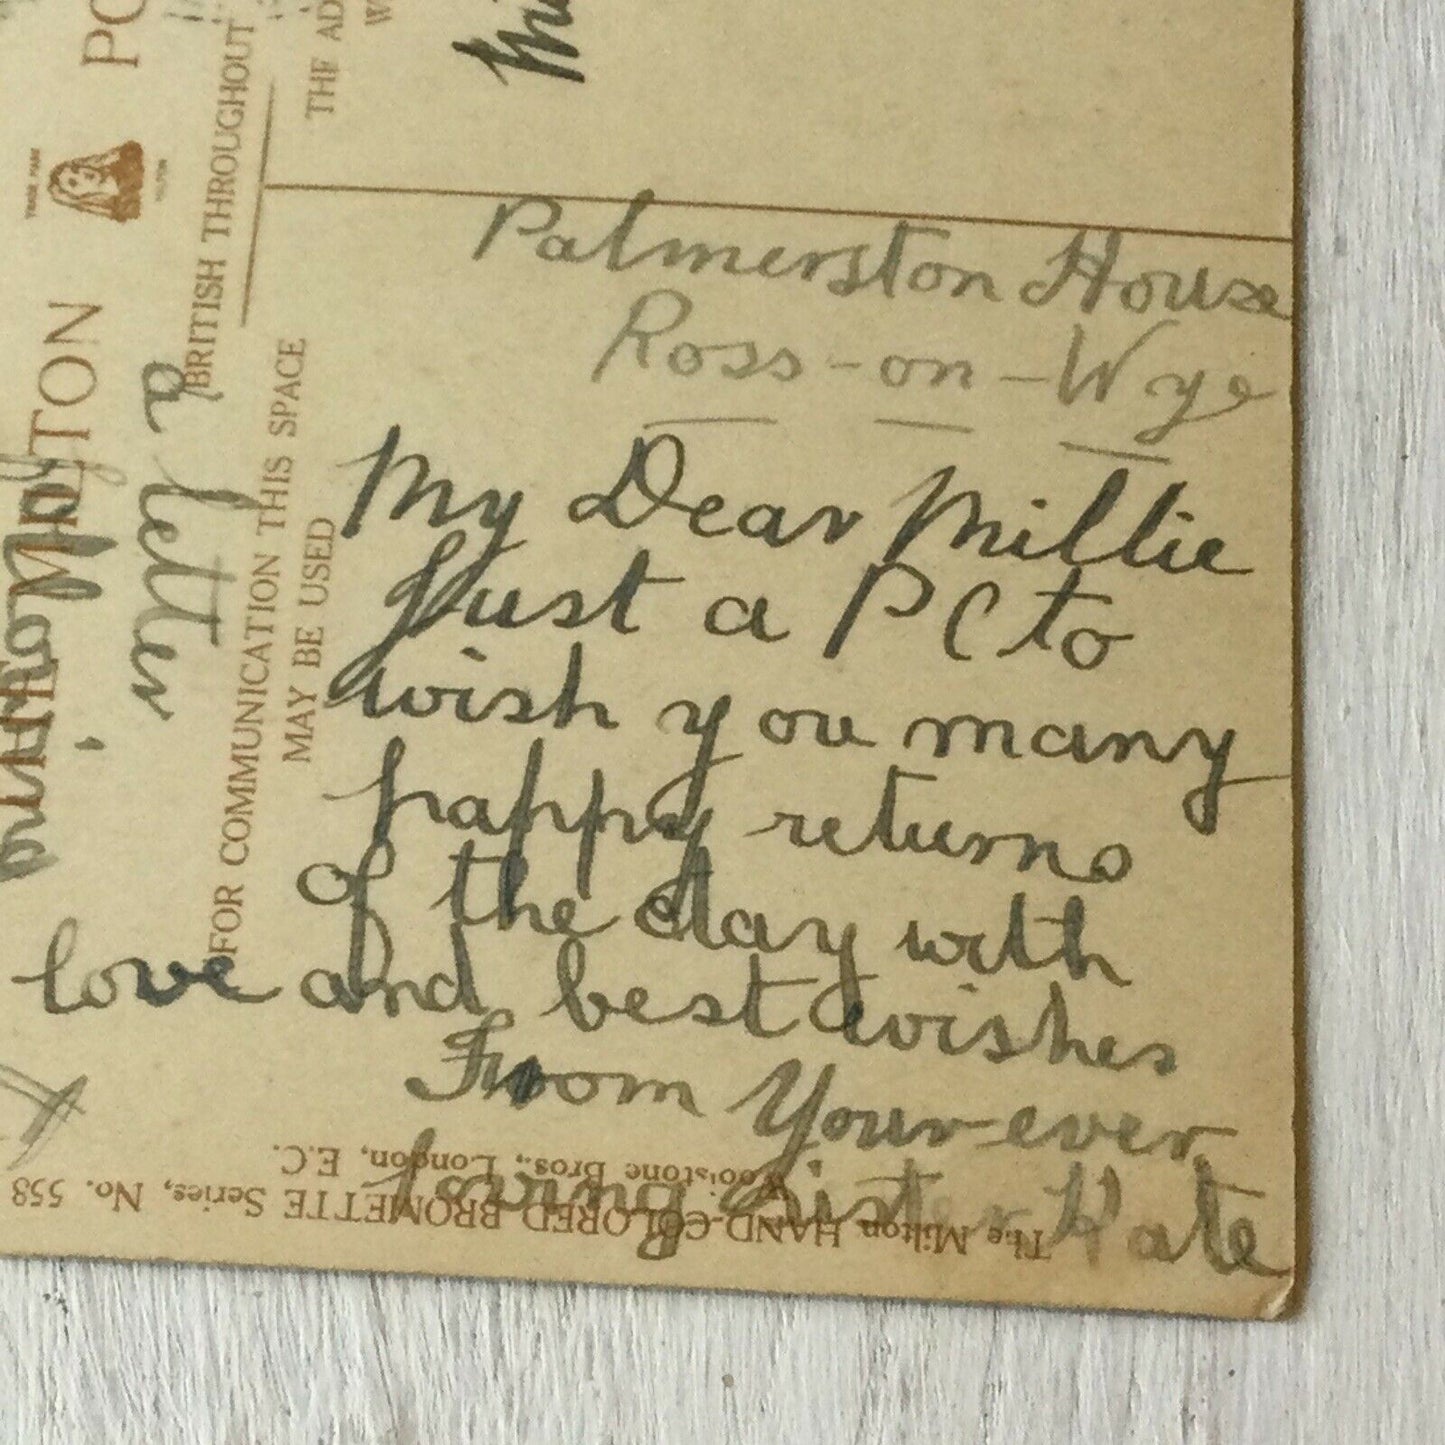 Palmerston House
Ross-on-Wye
My Dear Millie
Just a PC to
wish you many
happy returns
of the day with
love and best wishes
From Your ever
loving Sister Kate
a letter
following
MILTON
PO
TRADE MARK
MILTON
BRITISH THROUGHOUT
FOR COMMUNICATION THIS SPACE
MAY BE USED
THE AD
W
The Milton HAND-COLORED BROMETTE Series, No. 558
Woolstone Bros., London, E.C.